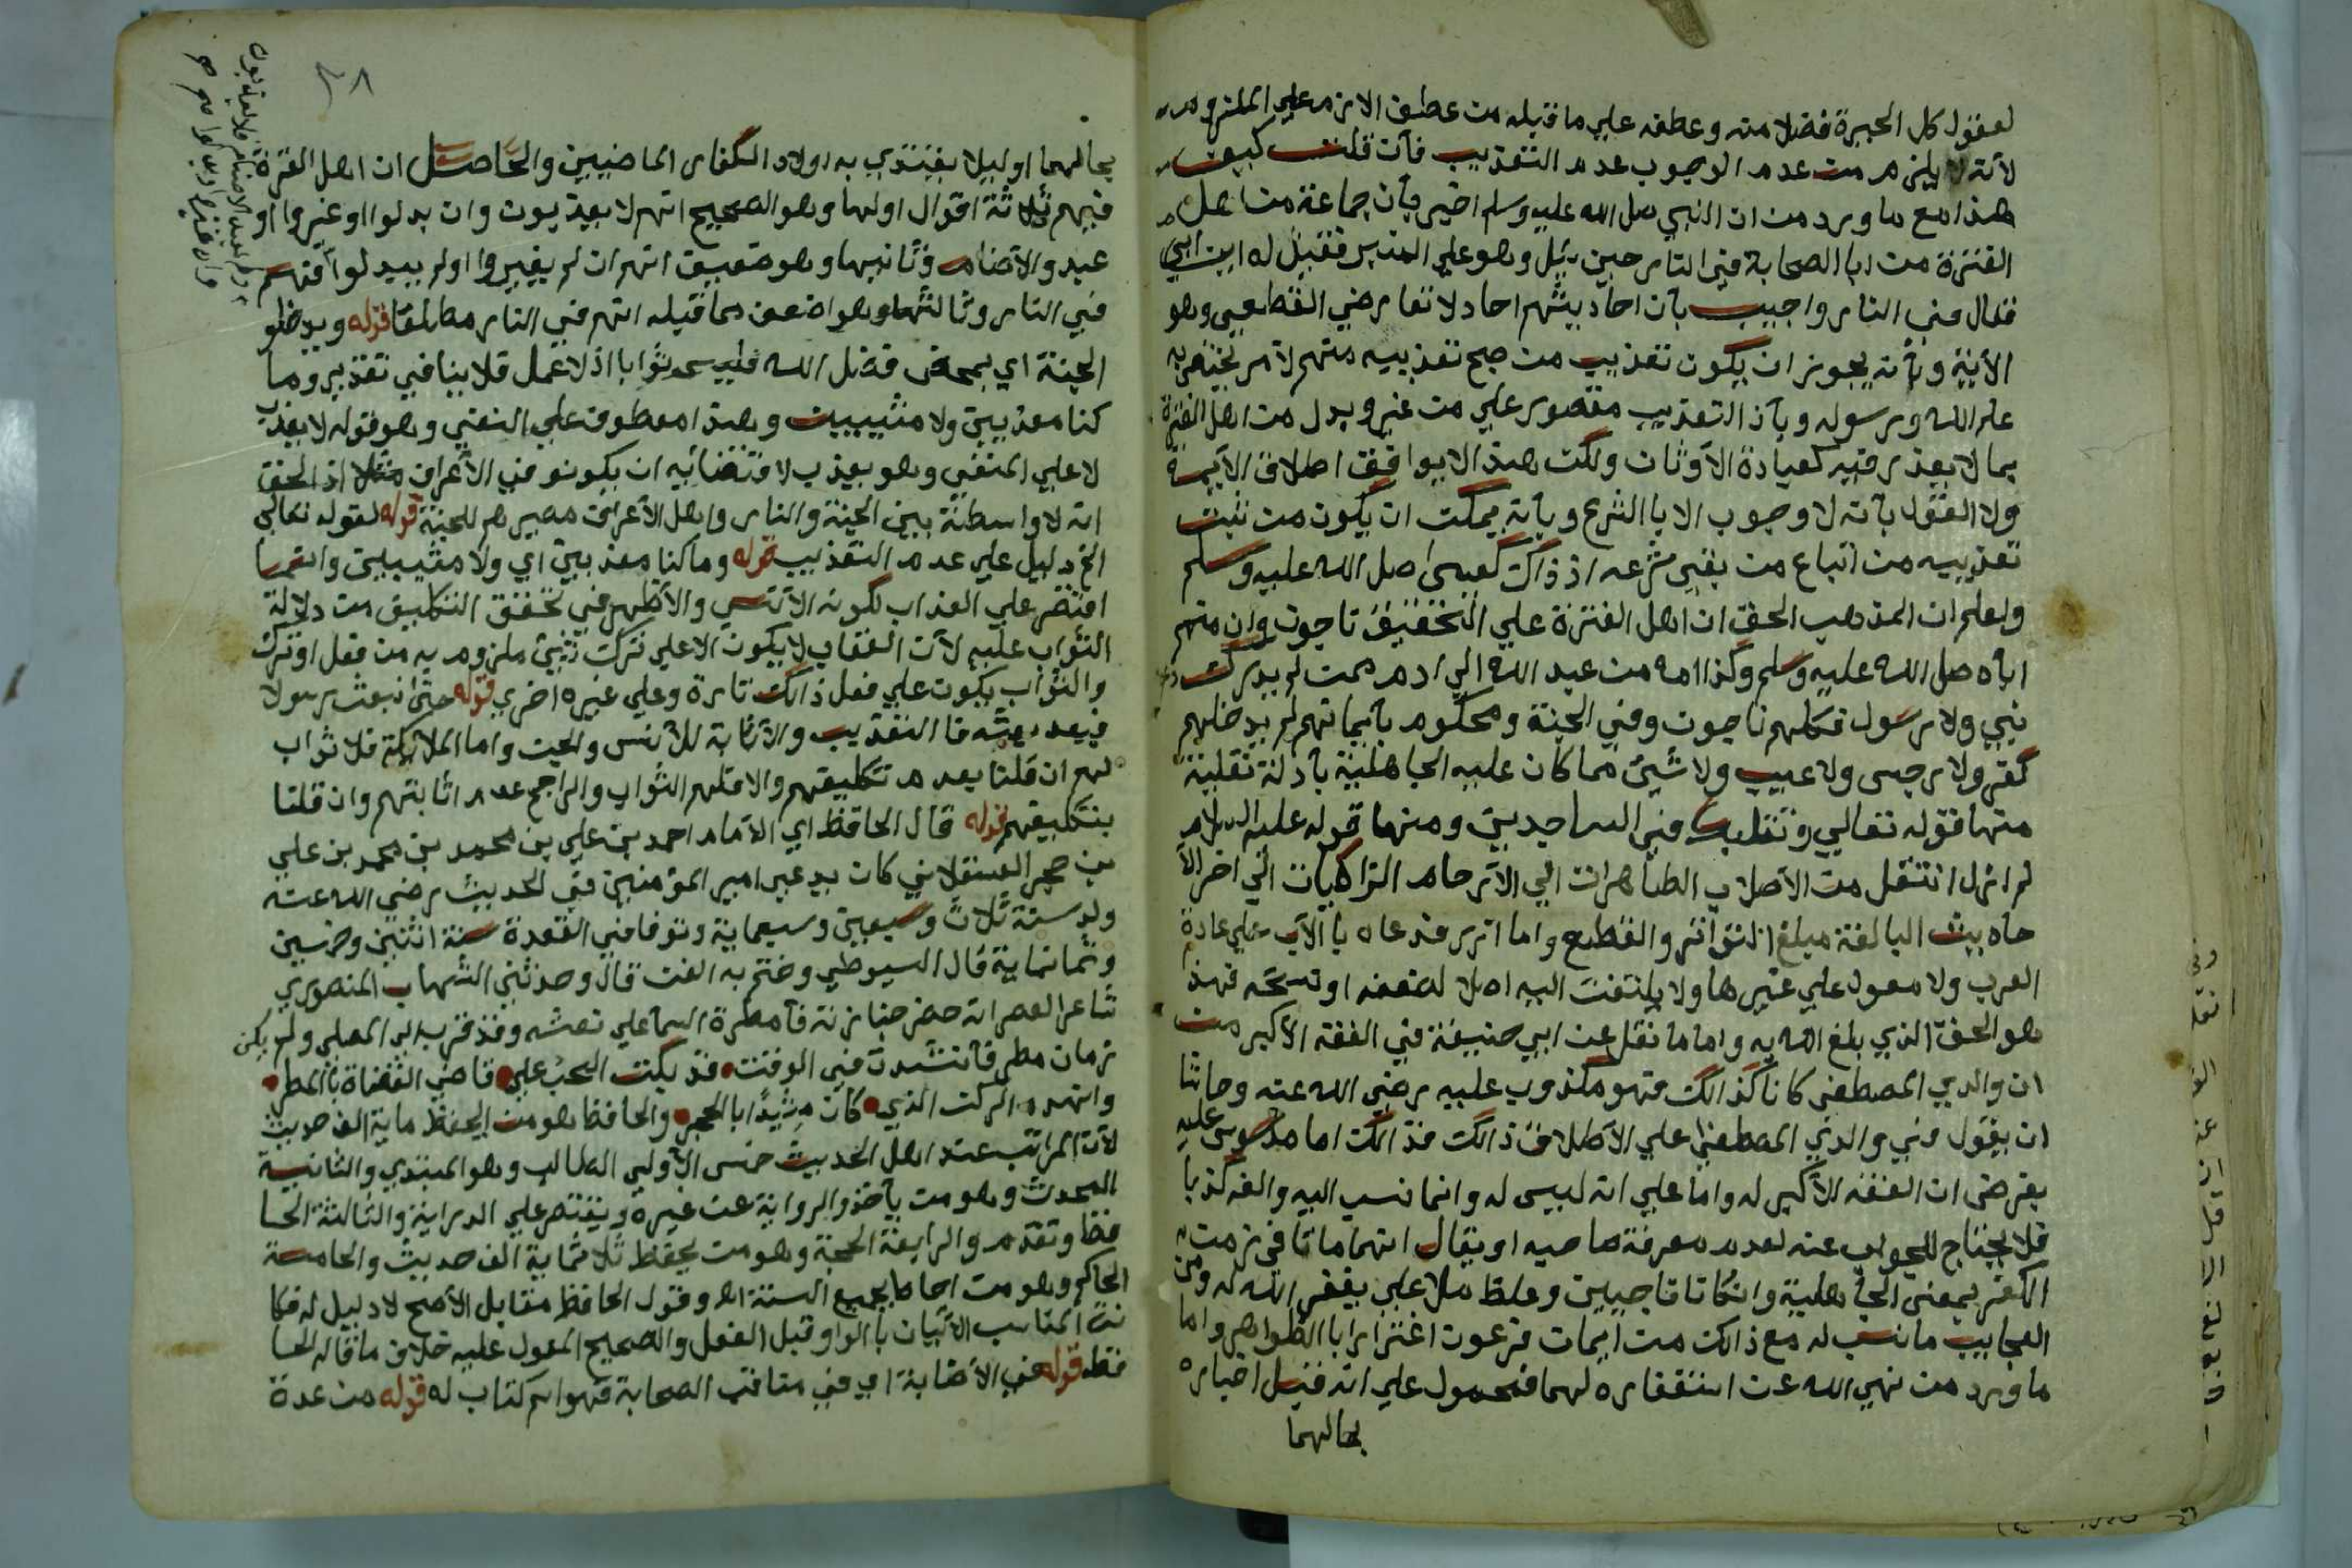 لعقول كل الحيرة فضلا منه وعطفه علي ما قبله من عطف اللازم علي الملزوم
لأنه لا يلزم من عدم الوجوب عدم التعذيب فأن قلت كيف
هذا مع ما ورد من ان النبي صل الله عليه وسلم اخبر بأن جماعة من اهل
الفترة من ابا الصحابة في النار حين سئل وهو علي المنبر فقيل له اين ابي
فقال في النار واجيب بأن احاديثهم احاد لا تعارض القطعي وهو
الأية وبأنه يجوز ان يكون تعذيب من صح تعذيبه منهم لامر يختص به
علم الله ورسوله وبأن التعذيب مقصور علي من غير وبدل من اهل الفترة
بما لا يعذر فيه كعبادة الأوثان ولكن هذا لا يوافق اطلاق الأيمة
ولا القول بأنه لا وجوب الا با الشرع وبأنه يمكن ان يكون من ثبت
تعذيبه من اتباع من بقي شرعه اذ ذاك كعيسى صل الله عليه وسلم
واعلم ان المذهب الحق ان اهل الفترة علي التحقيق ناجون وان منهم
اباه صل الله عليه وسلم وكذا امه من عبد الله الي ادم ممن لم يدرك
نبي ولا رسول فكلهم ناجون وفي الجنة ومحكوم بأيمانهم لم يدخلهم
كفر ولا رجس ولا عيب ولا شيئ مما كان عليه الجاهلية بأدلة نقلية
منها قوله تعالي وتقلبك في الساجدين ومنها قوله عليه السلام
لم ازل انتقل من الأصلاب الطاهرات الي الأرحام الزاكيات الي اخر الأ
حاديث البالغة مبلغ التواتر والقطع واما ازر فدعاه با الأب علي عادة
العرب ولا معول علي غيرها ولا يلتفت اليه اصلا لضعفه او نسخه فهذ
هو الحق الذي بلغ اهـ به واما ما نقل عن ابي حنيفة في الفقه الأكبر من
ان والدي المصطفى كانا كذالك فهو مكذوب عليه رضي الله عنه وحاشا
ان يقول في والدي المصطفى علي الأطلاق ذالك فذالك اما مدسوس عليه
بفرض ان الفقه الأكبر له واما علي انه ليس له وانما نسب اليه والف كذبا
فلا يحتاج للجواب عنه لعدم معرفة صاحبه او يقال انهما ماتا في زمن
الكفر بمعنى الجاهلية وان كانا ناجيين وغلط ملا علي يغفر الله له ومن
العجايب ما نسب له مع ذالك من ايمان فرعون اغترارا با الظواهر واما
ما ورد من نهي الله عن استغفاره لهما فمحمول علي انه قبل اخباره
بحالهما
٢٨
بحالهما او ليلا يقتدي به اولاد الكفار الماضيين والحاصل ان اهل الفترة
فيهم ثلاثة اقوال اولها وهو الصحيح انهم لا يعذبون وان بدلوا او غيروا او
عبدو الأصنام وثانيها وهو ضعيف انهم ان لم يغيروا او لم يبدلوا فهم
في النار وثالثها وهو اضعف مما قبله انهم في النار مطلقا قوله ويدخلو
الجنة اي بمحض فضل الله فليس ثوابا اذ لا عمل فلا ينافي تقدير وما
كنا معذبين ولا مثيبين وهذا معطوف علي النفي وهو قوله لا يعذب
لا علي المنفي وهو يعذب لاقتضائيه ان يكونو في الأعراف مثلا اذ الحق
انه لا واسطة بين الجنة والنار واهل الأعراف مصيرهم للجنة قوله لقوله تعالى
الخ دليل علي عدم التعذيب قوله وما كنا معذبين اي ولا مثيبين وانما
اقتصر علي العذاب لكونه الأنسب والأظهر في تحقق التكليف من دلالة
الثواب عليه لأن العقاب لا يكون الا علي ترك شيئ ملزوم به من فعل او ترك
والثواب يكون علي فعل ذالك تارة وعلي غيره اخرى قوله حتى نبعث رسولا
فبعد بعثه فا التعذيب والأثابة للأنس والجن واما الملائكة فلا ثواب
لهم ان قلنا بعدم تكليفهم والا فلهم الثواب والراجح عدم اثابتهم وان قلنا
بتكليفهم قوله قال الحافظ اي الأمام احمد بن علي بن محمد بن محمد بن علي
بن حجر العسقلاني كان يدعي امير المؤمنين في الحديث رضي الله عنه
ولد سنة ثلاث وسبعين وسبعماية وتوفا في القعدة سنة اثنين وخمسين
وثمانماية قال السيوطي وختم به الفن قال وحدثني الشهاب المنصوري
شاعر العصر انه حضر جنازته فأمطرة السما علي نعشه وقد قرب الى المصلى ولم يكن
زمان مطر فأنشدت في الوقت • قد بكت السحب علي • قاضي القضاة بالمطر •
وانهدم الركن الذي • كان مشيدا با الحجر • والحافظ هو من يحفظ ماية الف حديث
لأن المراتب عند اهل الحديث خمس الأولى الطالب وهو المبتدي والثانية
المحدث وهو من يأخذ الرواية عن غيره ويقتصر علي الدراية والثالثة الحا
فظ وتقدم والرابعة الحجة وهو من يحفظ ثلاثماية الف حديث والخامسة
الحاكم وهو من احاط بجميع السنة اهـ وقول الحافظ مقابل الأصح لا دليل له فكا
نت المناسب الأتيان با الواو قبل الفعل والصحيح المعول عليه خلاف ما قاله الحا
فظ قوله في الأصابة اي في مناقب الصحابة فهو اسم كتاب له قوله من عدة